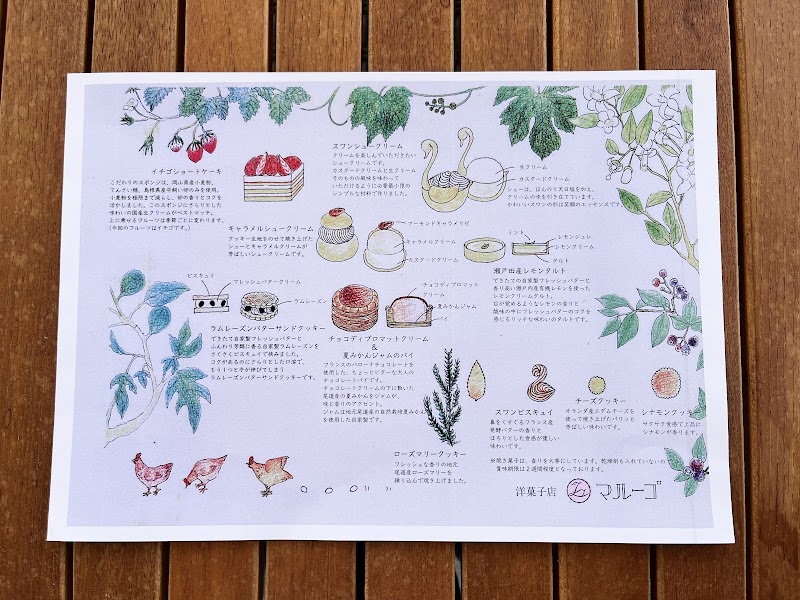 イチゴショートケーキ
こだわりのスポンジは、岡山県産小麦粉、
てんさい糖、島根県産平飼い卵のみを使用。
小麦粉を極限まで減らし、卵の香りとコクを
活かしました。このスポンジにさらりとした
味わいの国産生クリームがベストマッチ。
上に乗せるフルーツは季節ごとに変わります。
(今回のフルーツはイチゴです。)
スワンシュークリーム
クリームを楽しんでいただきたい
シュークリームです。
カスタードクリームと生クリーム
そのものの風味を味わって
いただけるように必要最小限の
シンプルな材料で作りました。
生クリーム
カスタードクリーム
シューは、ほんのり天日塩を加え、
クリームの味を引き立てています。
かわいいスワンの形は笑顔のエッセンスです。
キャラメルシュークリーム
クッキー生地をのせて焼き上げた
シューとキャラメルクリームが
芳ばしいシュークリームです。
アーモンドキャラメリゼ
キャラメルクリーム
カスタードクリーム
ミント
レモンジュレ
レモンクリーム
タルト
瀬戸田産レモンタルト
できたての自家製フレッシュバターと
香り高い瀬戸内産有機レモンを使った
レモンクリームタルト。
目が覚めるようなレモンの香りと
酸味の中にフレッシュバターのコクを
感じるリッチな味わいのタルトです。
ビスキュイ
フレッシュバタークリーム
ラムレーズン
ラムレーズンバターサンドクッキー
できたて自家製フレッシュバターと
ふんわり芳醇に香る自家製ラムレーズンを
さくさくビスキュイで挟みました。
コクがあるのにさらりとした口溶で、
もう1つと手が伸びてしまう
ラムレーズンバターサンドクッキーです。
チョコディプロマット
クリーム
夏みかんジャム
パイ
チョコディプロマットクリーム
&
夏みかんジャムのパイ
フランスのバローナチョコレートを
使用した、ちょっとビターな大人の
チョコレートパイです。
チョコレートクリームの下に敷いた
尾道産の夏みかんをジャムが、
味と香りのアクセント。
ジャムは地元尾道産の自然栽培夏みかん
を使用した自家製です。
ローズマリークッキー
フレッシュな香りの地元
尾道産ローズマリーを
練り込んで焼き上げました。
スワンビスキュイ
鼻をくすぐるフランス産
発酵バターの香りと
ほろりとした食感が優しい
味わいです。
チーズクッキー
オランダ産エダムチーズを
使って焼き上げたパリッと
芳ばしい味わいです。
シナモンクッキ
サクサク食感で上品に
シナモンが香ります。
※焼き菓子は、香りを大事にしています。乾燥剤も入れていないので
賞味期限は2週間程度となっております。
洋菓子店 マルーゴ